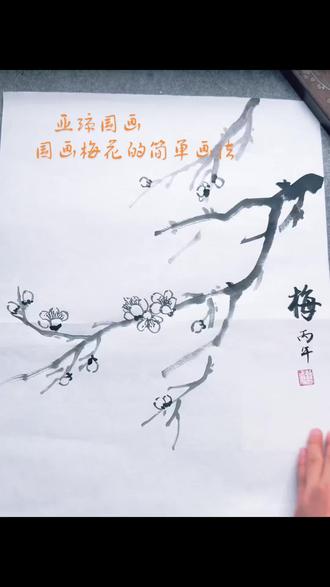 亚琼国画
国画梅花的简单画法
梅
丙午